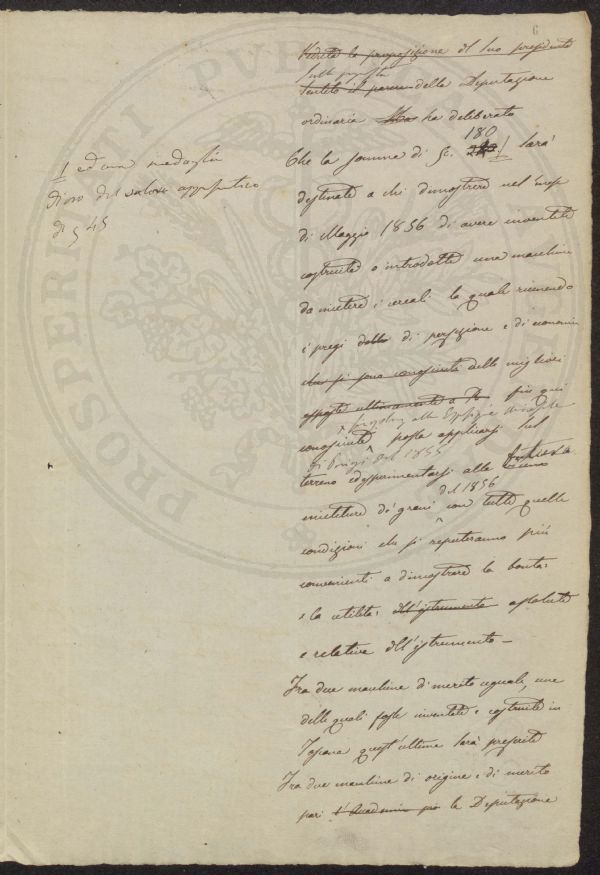 6
Udita la proposizione del suo presidente
sulla proposta
Sentito il parere della Deputazione
ordinaria ha deliberato
180
Che la somma di Sc. 1 sarà
destinata a chi dimostrerà nel
di Maggio 1856 di avere inventata
costruita o introdotta una macchina
da mietere i cereali la quale riunendo
i pregi dello di perfezione e di economia
che si sono conosciuti delle migliori
esposte ultimamente a più qui
alle
conosciute possa applicarsi sul
di Parigi del 1855
terreno edesperimentarsi alla
del 1856
mietitura de' grani con tutte quelle
condizioni che si reputeranno più
convenienti a dimostrare la bontà:
e la utilità: dell'istrumento assoluta
e relativa dell'istrumento—
Tra due macchine di merito uguale, una
delle quali fosse inventata e costruita in
Toscana quest'ultima sarà preferita
Tra due macchine di origine e di merito
pari l'Accademia la Deputazione
1 ed una medaglia
di oro del valore
di 45
PROSPERITÀ PUBBLICA